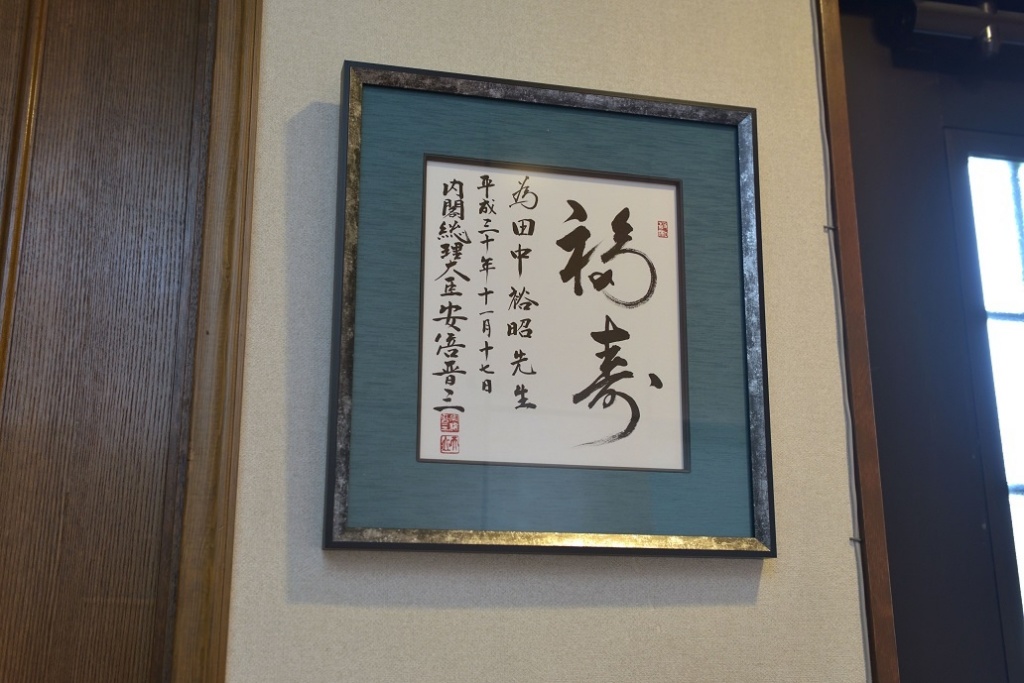 福寿
為田中裕昭先生
平成三十年十一月十七日
内閣総理大臣安倍晋三